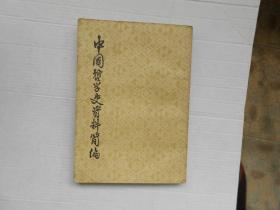 中国哲学史资料简编